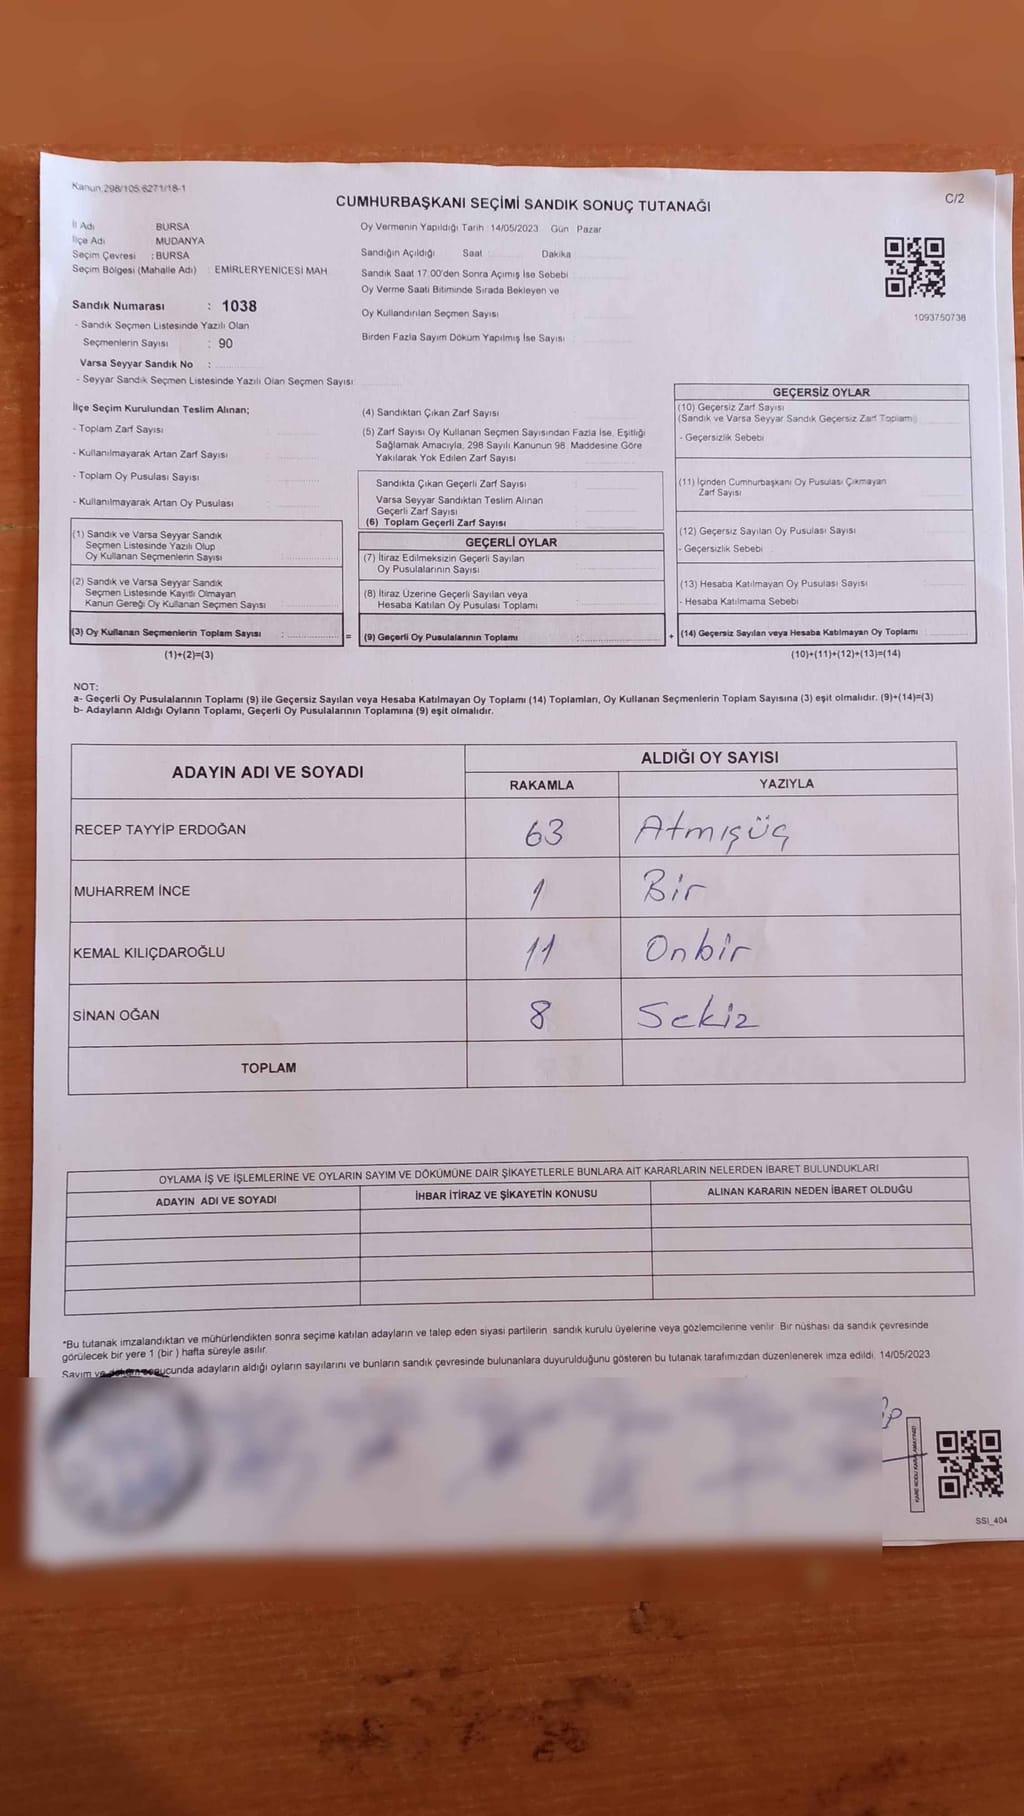 Kanun.298/105.6271/18-1
CUMHURBAŞKANI SEÇİMİ SANDIK SONUÇ TUTANAĞI
C/2
İl Adı BURSA
İlçe Adı MUDANYA
Seçim Çevresi : BURSA
Seçim Bölgesi (Mahalle Adı) : EMİRLERYENİCESİ MAH.
Sandık Numarası : 1038
- Sandık Seçmen Listesinde Yazılı Olan
Seçmenlerin Sayısı : 90
Varsa Seyyar Sandık No :
- Seyyar Sandık Seçmen Listesinde Yazılı Olan Seçmen Sayısı
Oy Vermenin Yapıldığı Tarih 14/05/2023 Gün Pazar
Sandığın Açıldığı Saat Dakika
Sandık Saat 17:00'den Sonra Açımış İse Sebebi
Oy Verme Saati Bitiminde Sırada Bekleyen ve
Oy Kullandırılan Seçmen Sayısı
Birden Fazla Sayım Döküm Yapılmış İse Sayısı
1093750738
İlçe Seçim Kurulundan Teslim Alınan;
- Toplam Zarf Sayısı
- Kullanılmayarak Artan Zarf Sayısı
- Toplam Oy Pusulası Sayısı
- Kullanılmayarak Artan Oy Pusulası
(1) Sandık ve Varsa Seyyar Sandık
Seçmen Listesinde Yazılı Olup
Oy Kullanan Seçmenlerin Sayısı
(2) Sandık ve Varsa Seyyar Sandık
Seçmen Listesinde Kayıtlı Olmayan
Kanun Gereği Oy Kullanan Seçmen Sayısı
(3) Oy Kullanan Seçmenlerin Toplam Sayısı :
(1)+(2)=(3)
(4) Sandıktan Çıkan Zarf Sayısı
(5) Zarf Sayısı Oy Kullanan Seçmen Sayısından Fazla İse, Eşitliği
Sağlamak Amacıyla, 298 Sayılı Kanunun 98. Maddesine Göre
Yakılarak Yok Edilen Zarf Sayısı
Sandıkta Çıkan Geçerli Zarf Sayısı
Varsa Seyyar Sandıktan Teslim Alınan
Geçerli Zarf Sayısı
(6) Toplam Geçerli Zarf Sayısı
GEÇERLİ OYLAR
(7) İtiraz Edilmeksizin Geçerli Sayılan
Oy Pusulalarının Sayısı
(8) İtiraz Üzerine Geçerli Sayılan veya
Hesaba Katılan Oy Pusulası Toplamı
= (9) Geçerli Oy Pusulalarının Toplamı :
GEÇERSİZ OYLAR
(10) Geçersiz Zarf Sayısı
(Sandık ve Varsa Seyyar Sandık Geçersiz Zarf Toplamı)
- Geçersizlik Sebebi
(11) İçinden Cumhurbaşkanı Oy Pusulası Çıkmayan
Zarf Sayısı
(12) Geçersiz Sayılan Oy Pusulası Sayısı
- Geçersizlik Sebebi
(13) Hesaba Katılmayan Oy Pusulası Sayısı
- Hesaba Katılmama Sebebi
+ (14) Geçersiz Sayılan veya Hesaba Katılmayan Oy Toplamı
(10)+(11)+(12)+(13)=(14)
NOT:
a- Geçerli Oy Pusulalarının Toplamı (9) ile Geçersiz Sayılan veya Hesaba Katılmayan Oy Toplamı (14) Toplamları, Oy Kullanan Seçmenlerin Toplam Sayısına (3) eşit olmalıdır. (9)+(14)=(3)
b- Adayların Aldığı Oyların Toplamı, Geçerli Oy Pusulalarının Toplamına (9) eşit olmalıdır.
ADAYIN ADI VE SOYADI
ALDIĞI OY SAYISI
RAKAMLA YAZIYLA
RECEP TAYYİP ERDOĞAN 63 Atmışüç
MUHARREM İNCE 1 Bir
KEMAL KILIÇDAROĞLU 11 Onbir
SİNAN OĞAN 8 Sekiz
TOPLAM
OYLAMA İŞ VE İŞLEMLERİNE VE OYLARIN SAYIM VE DÖKÜMÜNE DAİR ŞİKAYETLERLE BUNLARA AİT KARARLARIN NELERDEN İBARET BULUNDUKLARI
ADAYIN ADI VE SOYADI İHBAR İTİRAZ VE ŞİKAYETİN KONUSU ALINAN KARARIN NEDEN İBARET OLDUĞU
*Bu tutanak imzalandıktan ve mühürlendikten sonra seçime katılan adayların ve talep eden siyasi partilerin sandık kurulu üyelerine veya gözlemcilerine verilir. Bir nüshası da sandık çevresinde
görülecek bir yere 1 (bir ) hafta süreyle asılır.
Sayım ve sonucunda adayların aldığı oyların sayılarını ve bunların sandık çevresinde bulunanlara duyurulduğunu gösteren bu tutanak tarafımızdan düzenlenerek imza edildi. 14/05/2023
SSI_404